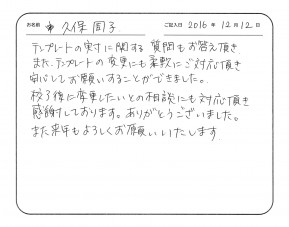 お名前 久保 周子 ご記入日 2016 年 12 月 12 日
テンプレートの実寸に関する質問もお答え頂き
また、テンプレートの変更にも柔軟にご対応頂き
安心してお願いすることができました。
校了後に変更したいとの相談にも対応頂き
感謝しております。ありがとうございました。
また来年もよろしくお願いいたします